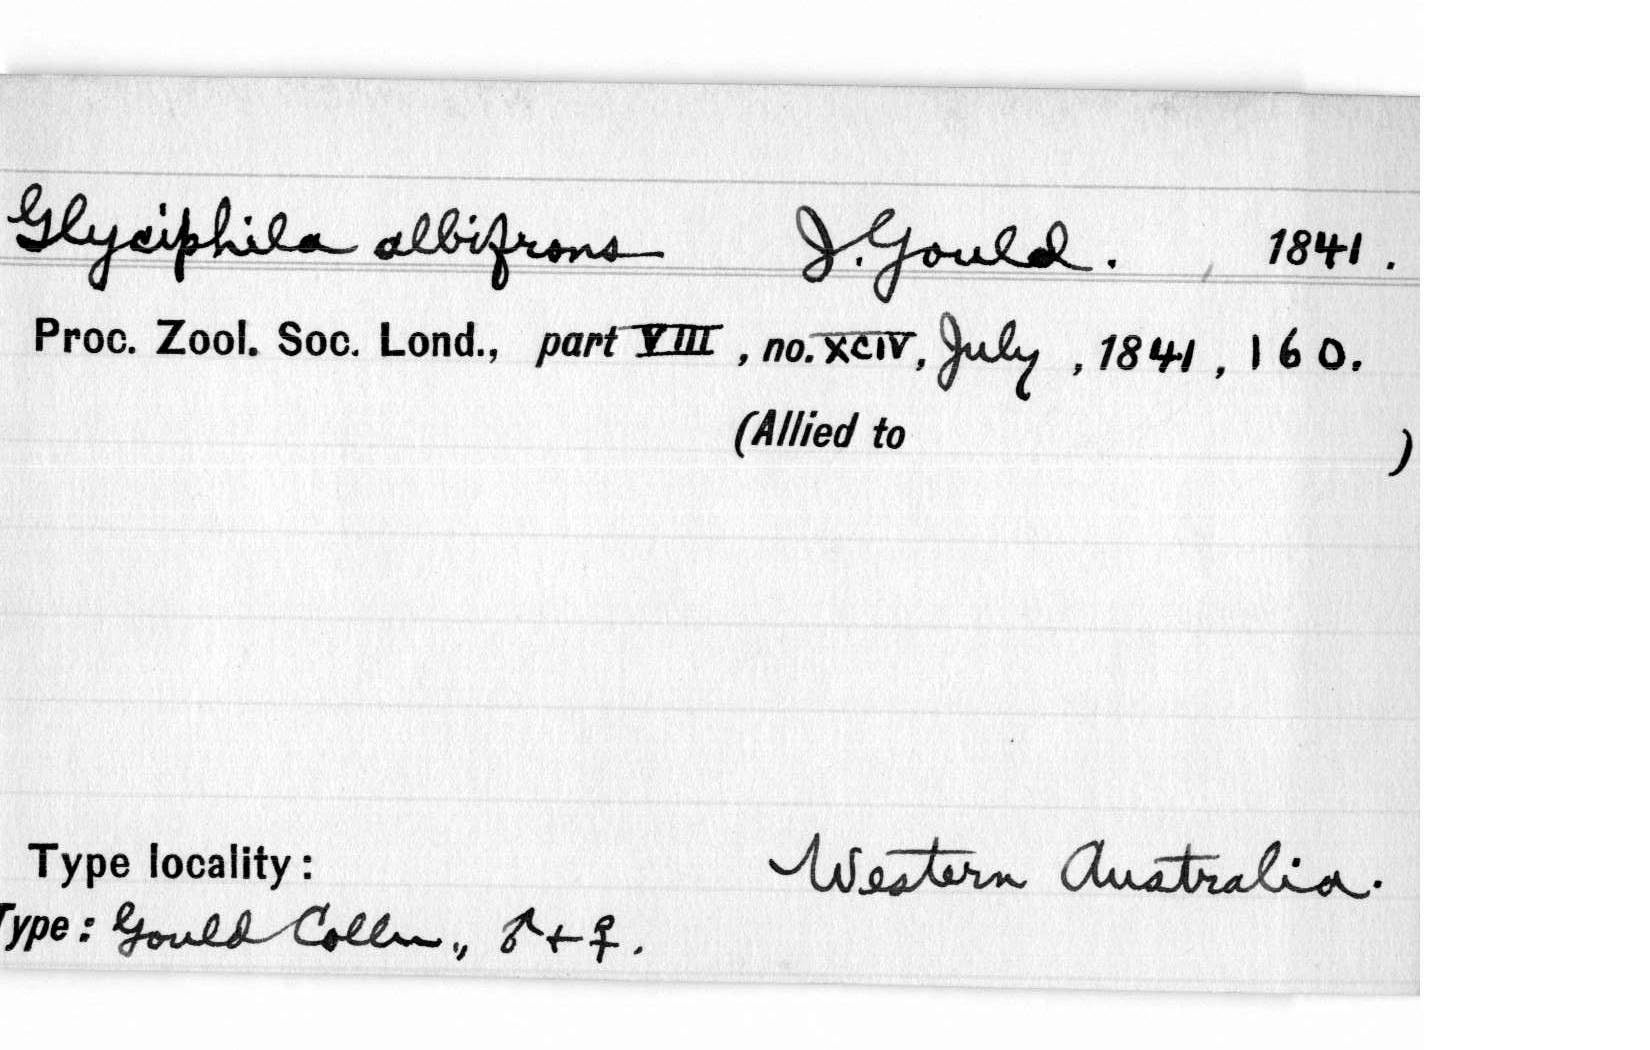 Glyciphila albifrons J. Gould. 1841.
Proc. Zool. Soc. Lond., part VIII, no. XCIV, July, 1841, 160.
(Allied to )
Type locality: Western Australia.
Type: Gould Colln., ♂ + ♀.